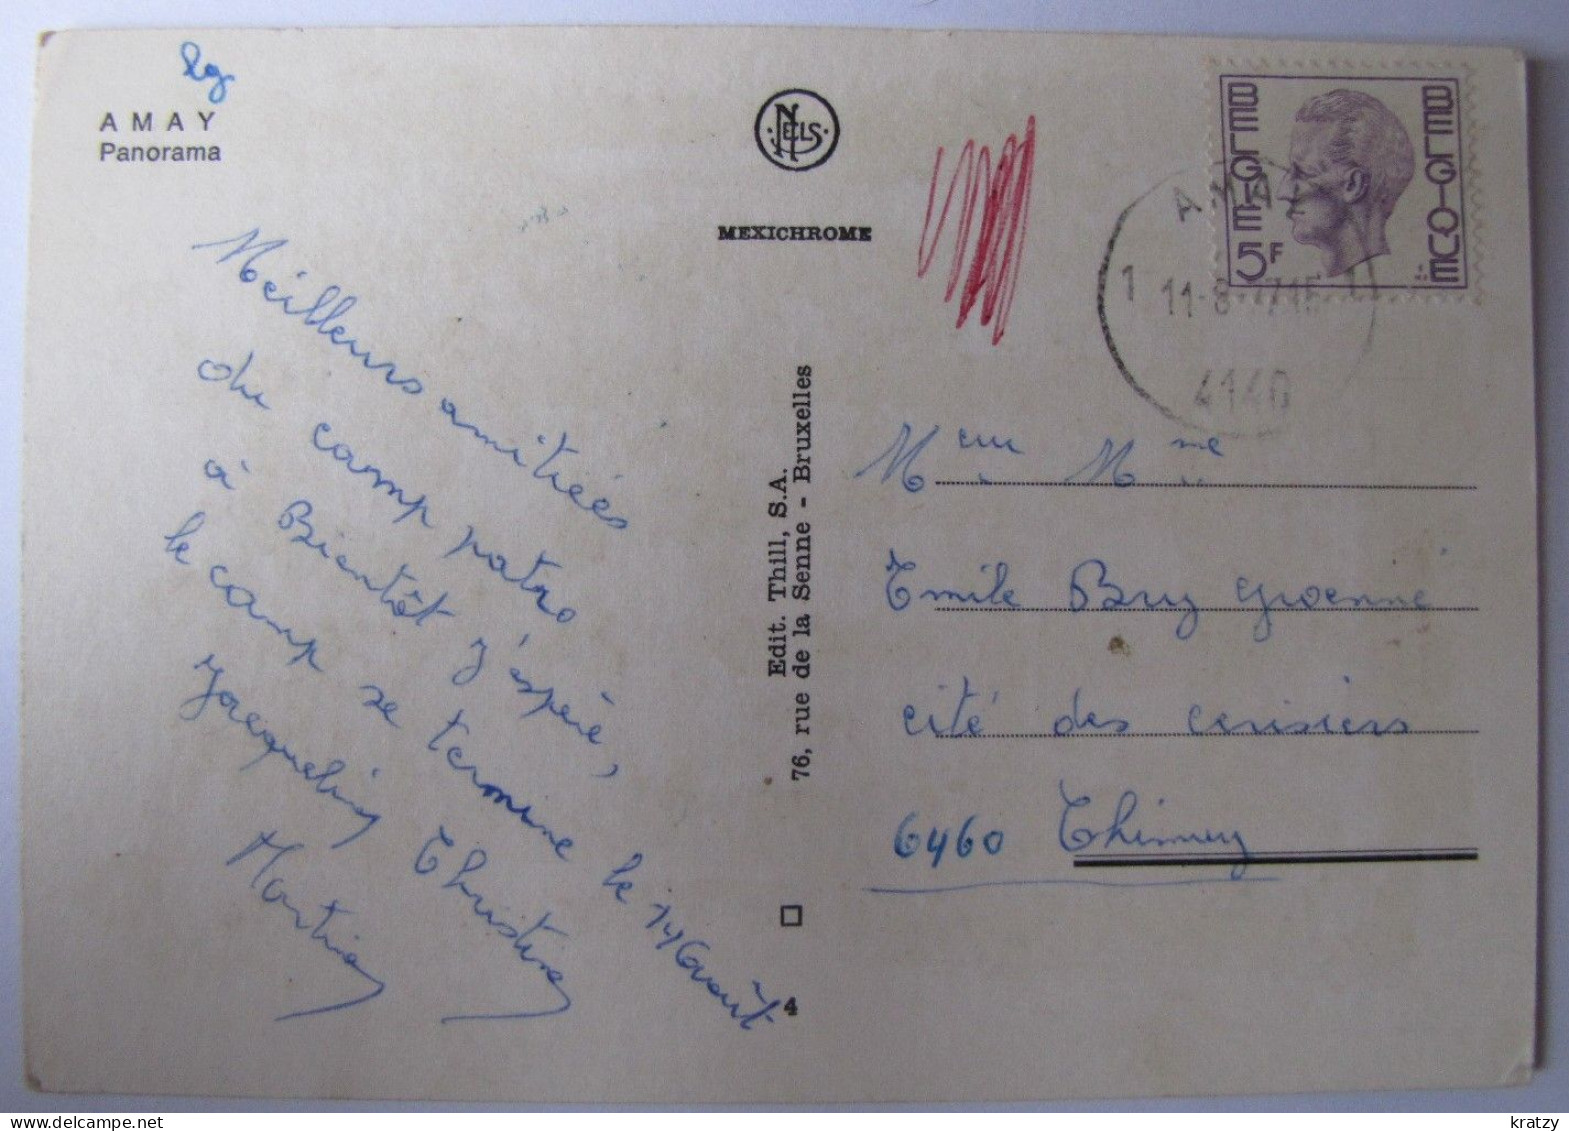 lg
AMAY
Panorama
NELS
MEXICHROME
BELGIE BELGIQUE
5F
AMAY
1 11-8 1715 1
4140
Meilleurs amitiées
du camp patro
à Bientôt j'éspère,
le camp se termine le 14 Août
Jacqueline Christine
Martine
Edit. Thill, S.A.
76, rue de la Senne - Bruxelles
4
Meur Mme
Emile Bry
cité des cerisiers
6460 Chimay
kratzy